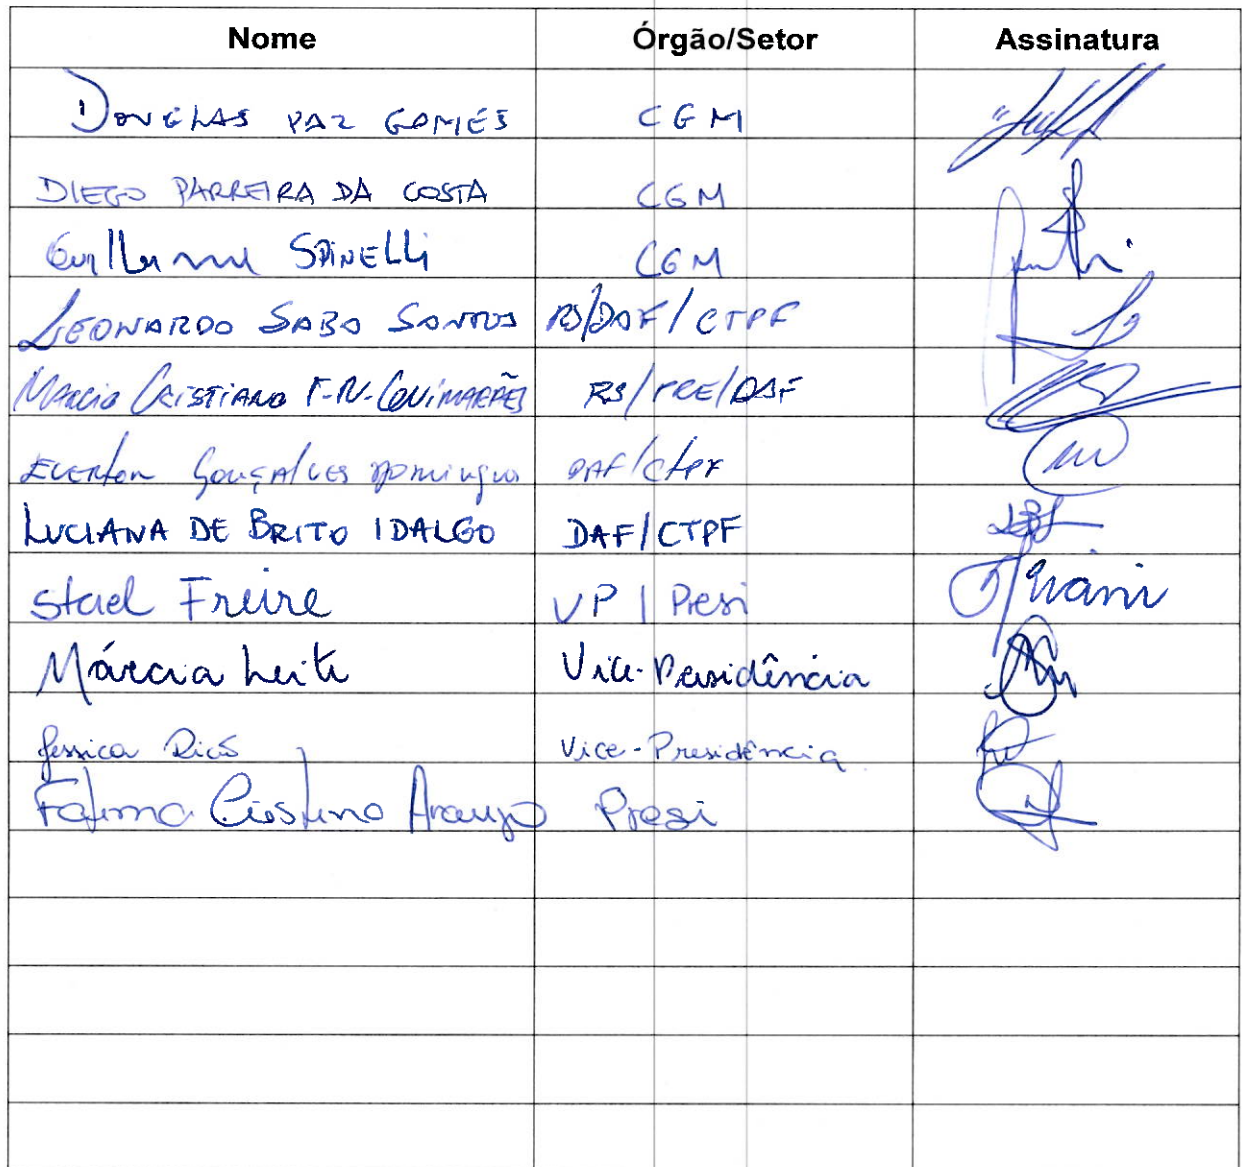 Nome Órgão/Setor Assinatura
DOUGLAS PAZ GOMES CGM
DIEGO PARREIRA DA COSTA CGM
Guilherme SPINELLI CGM
LEONARDO SABO SANTOS RS/DAF/CTPF
MARCIO CRISTIANO GUIMARÃES RS/PRE/DAF
EVERTON GONÇALVES Domingus DAF/CTPF
LUCIANA DE BRITO IDALGO DAF/CTPF
Stael Freire VP | Presi
Márcia Leite Vice-Presidência
Jessica Vice-Presidência
Fatima Cristina Araujo Presi